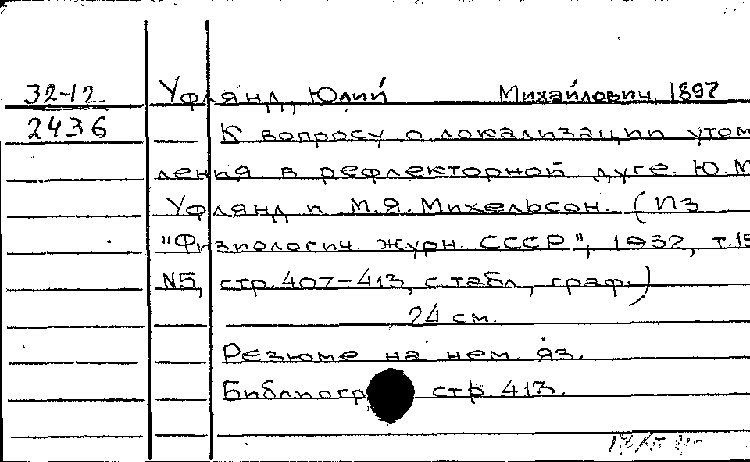 32-12 Уфлянд, Юлий Михайлович, 1897
2436 К вопросу о локализации утом
ления в рефлекторной дуге. Ю. М
Уфлянд и М. Я. Михельсон. (Из
"Физиологич. журн. СССР", 1932, т. 15
№5, стр. 407-413, с табл., граф.)
24 см.
Резюме на нем. яз.
Библиогр стр. 413.